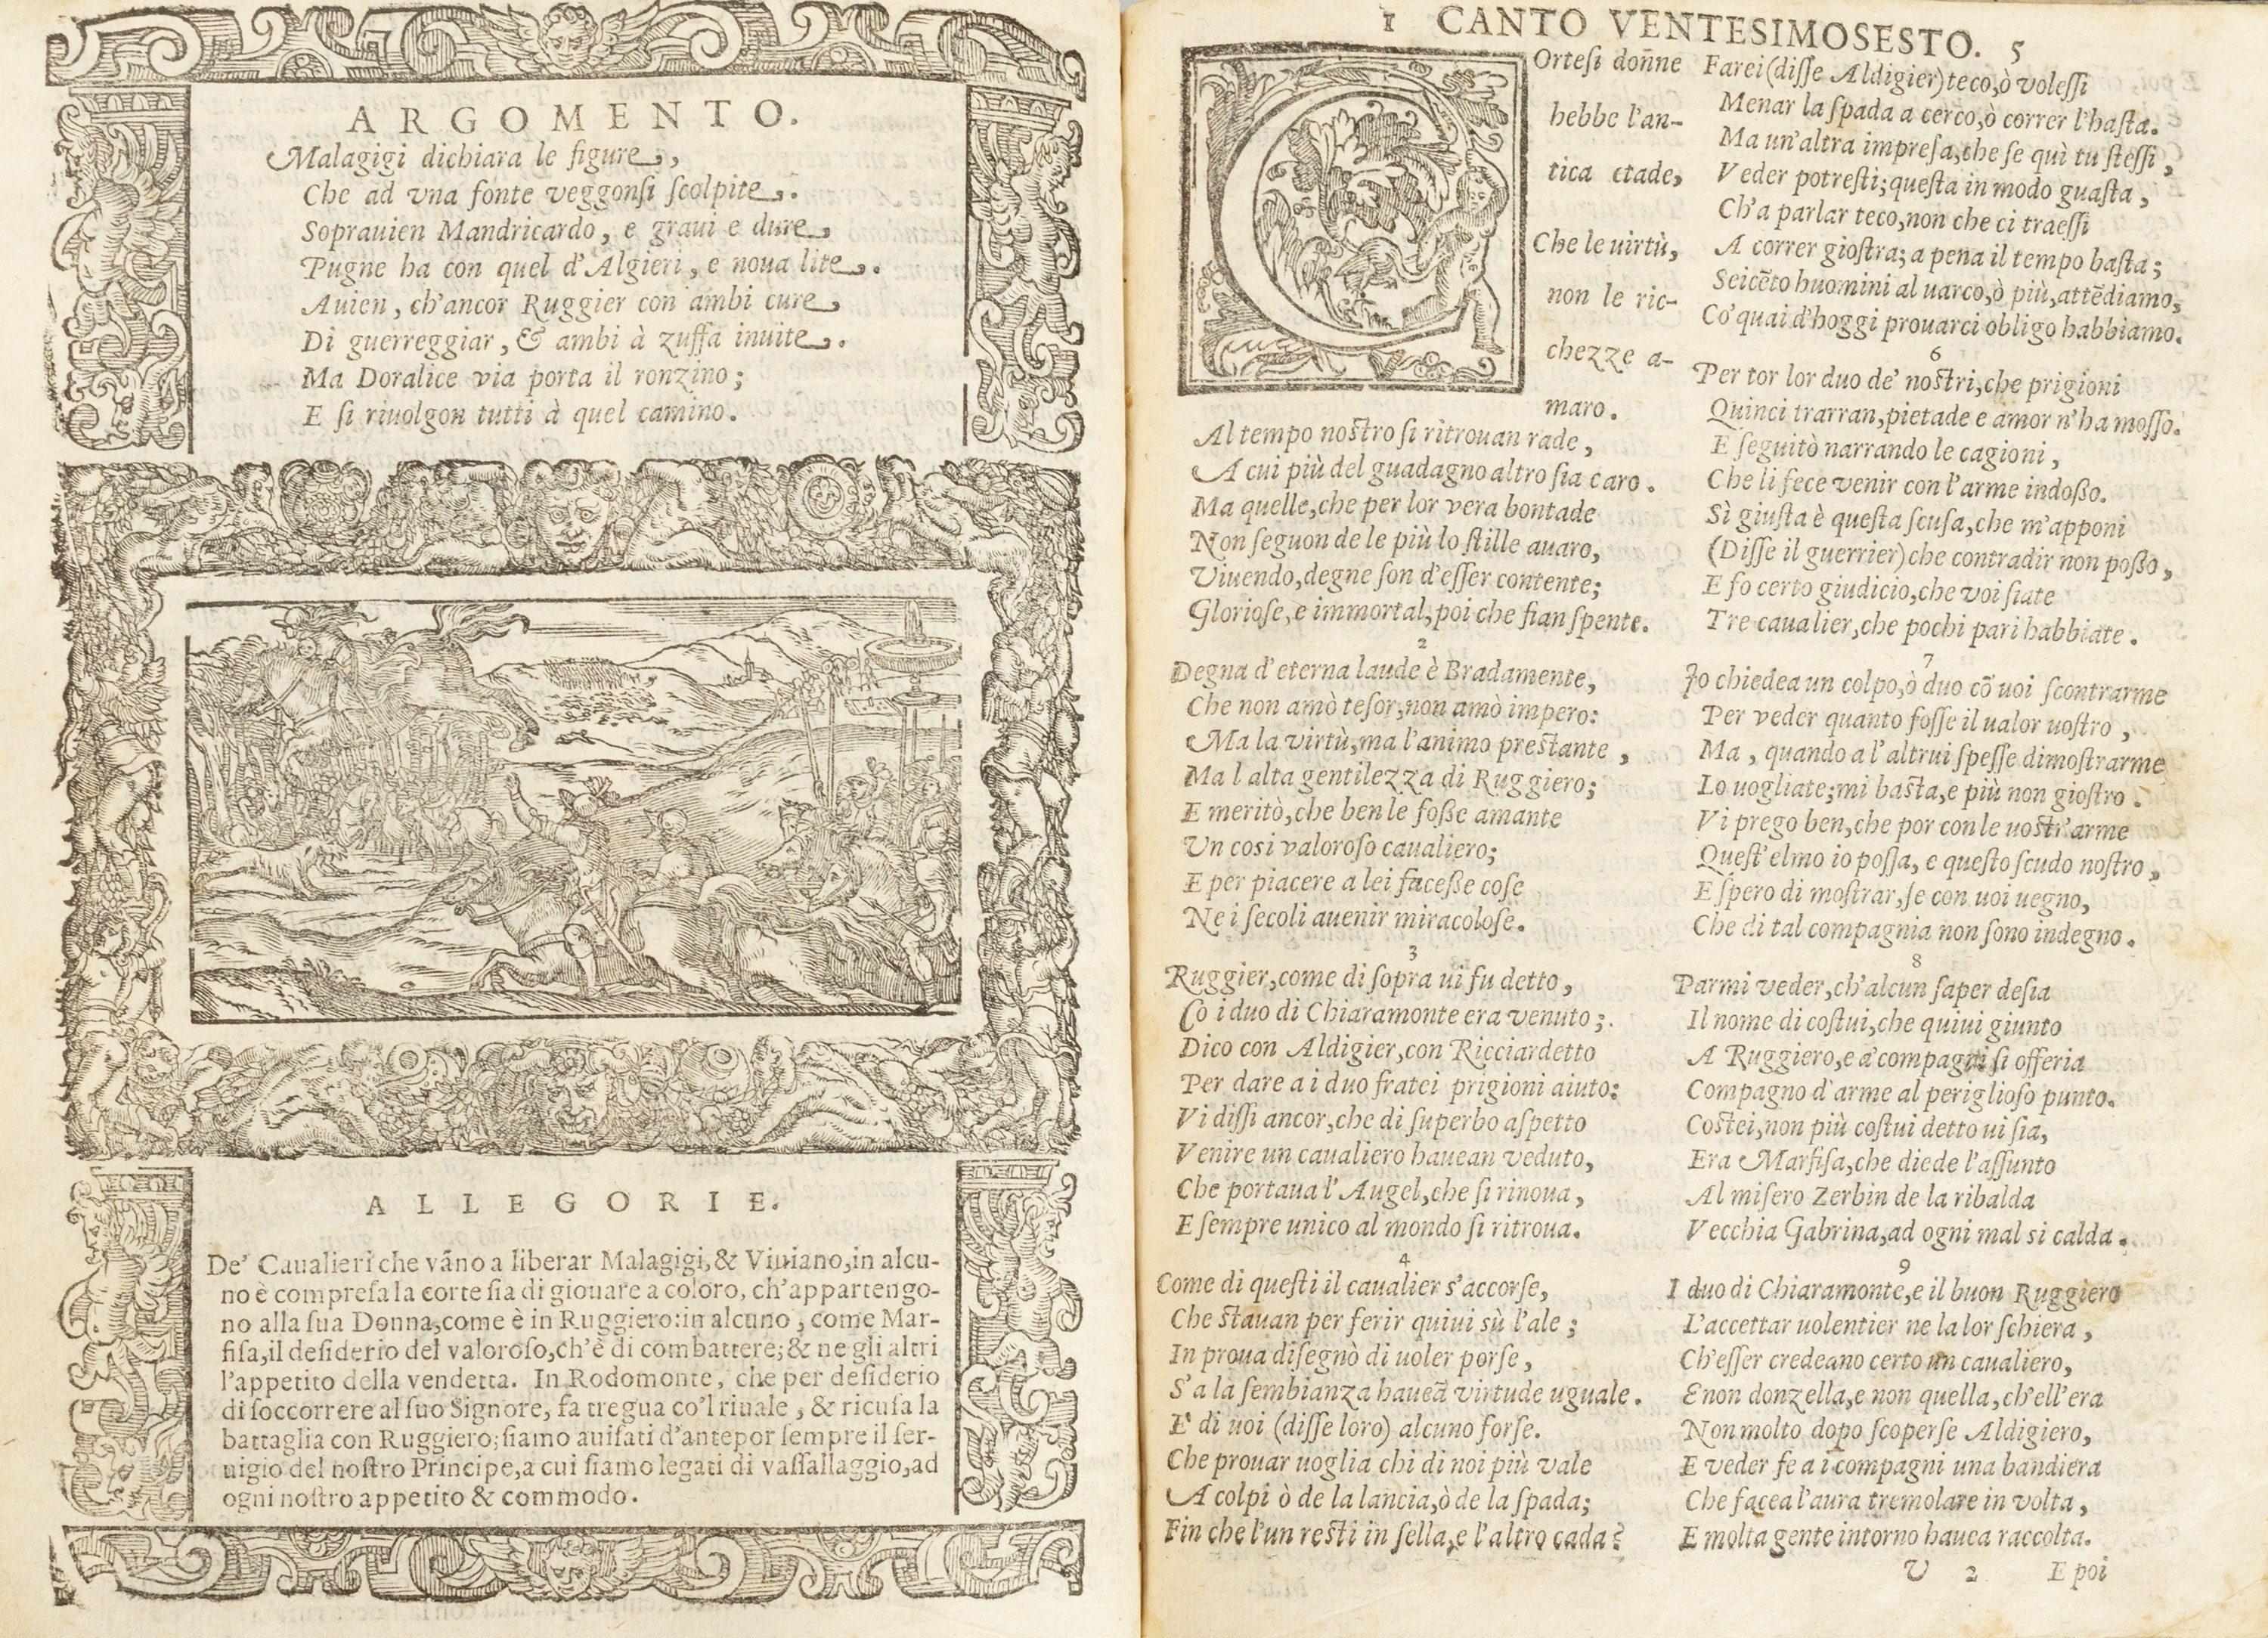 ARGOMENTO.
Malagigi dichiara le figure,
Che ad vna fonte veggonsi ſcolpite.
Soprauien Mandricardo, e graui e dure
Pugne ha con quel d'Algieri, e noua lite.
Auien, ch'ancor Ruggier con ambi cure
Di guerreggiar, & ambi à zuffa inuite.
Ma Doralice via porta il ronzino;
E ſi riuolgon tutti à quel camino.
ALLEGORIE.
De' Caualieri che vāno a liberar Malagigi, & Viuiano, in alcu-
no è compreſa la corteſia di giouare a coloro, ch'appartengo-
no alla ſua Donna, come è in Ruggiero: in alcuno, come Mar-
fiſa, il deſiderio del valoroſo, ch'è di combattere; & ne gli altri
l'appetito della vendetta. In Rodomonte, che per deſiderio
di ſoccorrere al ſuo Signore, fa tregua co'l riuale, & ricuſa la
battaglia con Ruggiero; ſiamo auiſati d'antepor ſempre il ſer-
uigio del noſtro Principe, a cui ſiamo legati di vaſſallaggio, ad
ogni noſtro appetito & commodo.
CANTO VENTESIMOSESTO.
1
COrteſi don̄ne
hebbe l'an-
tica etade,
Che le uirtù,
non le ric-
chezze a-
maro.
Al tempo noſtro ſi ritrouan rade,
A cui più del guadagno altro ſia caro.
Ma quelle, che per lor vera bontade
Non ſeguon de le più lo ſtille auaro,
Viuendo, degne ſon d'eſſer contente;
Glorioſe, e immortal, poi che fian ſpente.
2
Degna d'eterna laude è Bradamente,
Che non amò teſor, non amò impero:
Ma la virtù, ma l'animo preſtante,
Ma l alta gentilezza di Ruggiero;
E meritò, che ben le foſſe amante
Un coſi valoroſo caualiero;
E per piacere a lei faceſſe coſe
Ne i ſecoli auenir miracoloſe.
3
Ruggier, come di ſopra ui fu detto,
Co i duo di Chiaramonte era venuto;
Dico con Aldigier, con Ricciardetto
Per dare a i duo fratei prigioni aiuto:
Vi diſſi ancor, che di ſuperbo aſpetto
Venire un caualiero hauean veduto,
Che portaua l'Augel, che ſi rinoua,
E ſempre unico al mondo ſi ritroua.
4
Come di queſti il caualier s'accorſe,
Che ſtauan per ferir quiui sù l'ale;
In proua diſegnò di uoler porſe,
S'a la ſembianza haueā virtude uguale.
E' di uoi (diſſe loro) alcuno forſe.
Che prouar uoglia chi di noi più vale
A colpi ò de la lancia, ò de la ſpada;
Fin che l'un reſti in ſella, e l'altro cada?
5
Farei (diſſe Aldigier) teco, ò voleſſi
Menar la ſpada a cerco, ò correr l'haſta.
Ma un'altra impreſa, che ſe quì tu ſteſſi,
Veder potreſti; queſta in modo guaſta,
Ch'a parlar teco, non che ci traeſſi
A correr gioſtra; a pena il tempo baſta;
Seicēto huomini al uarco, ò più, attēdiamo,
Co' quai d'hoggi prouarci obligo habbiamo.
6
Per tor lor duo de' noſtri, che prigioni
Quinci trarran, pietade e amor n'ha moſſo.
E ſeguitò narrando le cagioni,
Che li fece venir con l'arme indoſſo.
Sì giuſta è queſta ſcuſa, che m'apponi
(Diſſe il guerrier) che contradir non poſſo,
E fo certo giudicio, che voi ſiate
Tre caualier, che pochi pari habbiate.
7
Io chiedea un colpo, ò duo cō uoi ſcontrarme
Per veder quanto foſſe il ualor uoſtro,
Ma, quando a l'altrui ſpeſſe dimoſtrarme
Lo uogliate; mi baſta, e più non gioſtro.
Vi prego ben, che por con le uoſtr'arme
Queſt'elmo io poſſa, e queſto ſcudo noſtro,
E ſpero di moſtrar, ſe con uoi uegno,
Che di tal compagnia non ſono indegno.
8
Parmi veder, ch'alcun ſaper deſia
Il nome di coſtui, che quiui giunto
A Ruggiero, e a' compagni ſi offeria
Compagno d'arme al periglioſo punto.
Coſtei, non più coſtui detto ui ſia,
Era Marfiſa, che diede l'aſſunto
Al miſero Zerbin de la ribalda
Vecchia Gabrina, ad ogni mal si calda.
9
I duo di Chiaramonte, e il buon Ruggiero
L'accettar uolentier ne la lor ſchiera,
Ch'eſſer credeano certo un caualiero,
E non donzella, e non quella, ch'ell'era
Non molto dopo ſcoperſe Aldigiero,
E veder fe a i compagni una bandiera
Che facea l'aura tremolare in volta,
E molta gente intorno hauea raccolta.
V 2 E poi